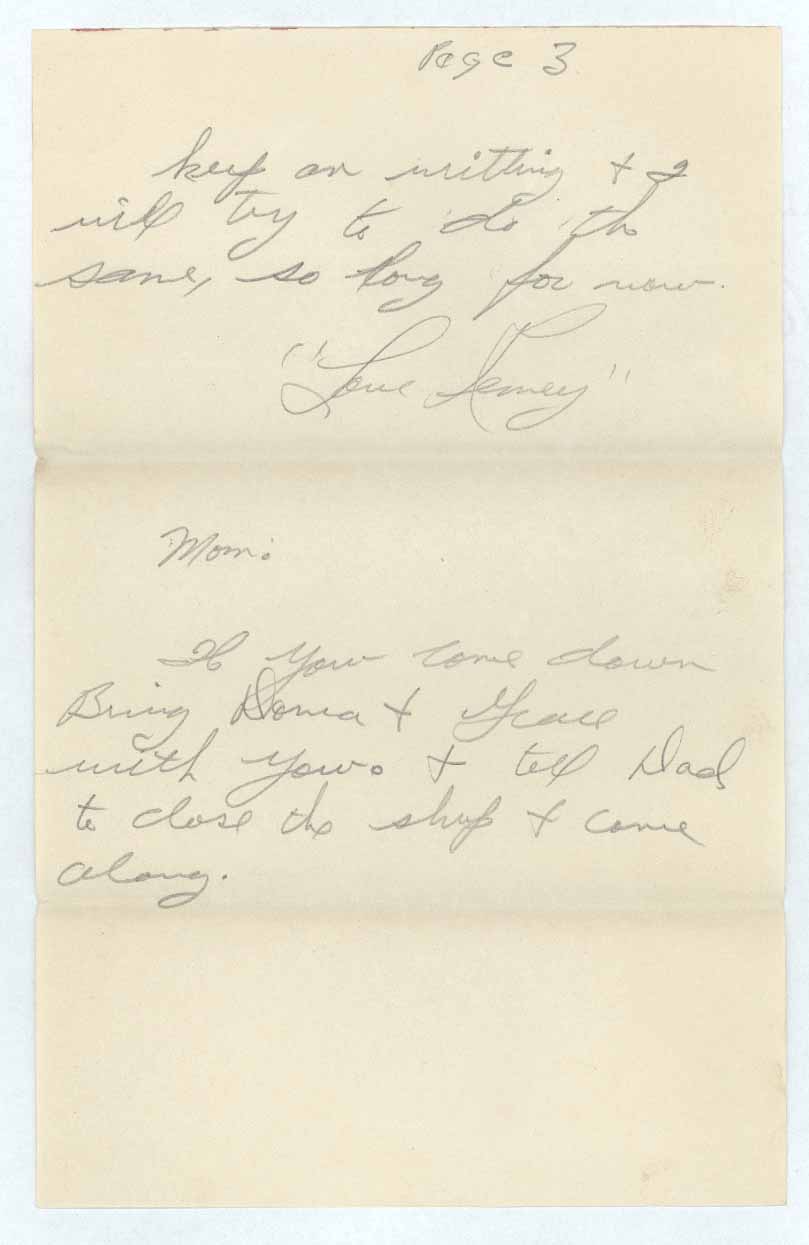 Page 3
keep on writting & I
will try to do the
same, so long for now.
"Love
Mom:
If you come down
Bring & Grace
with you. & tell Dad
to close the shop & come
along.